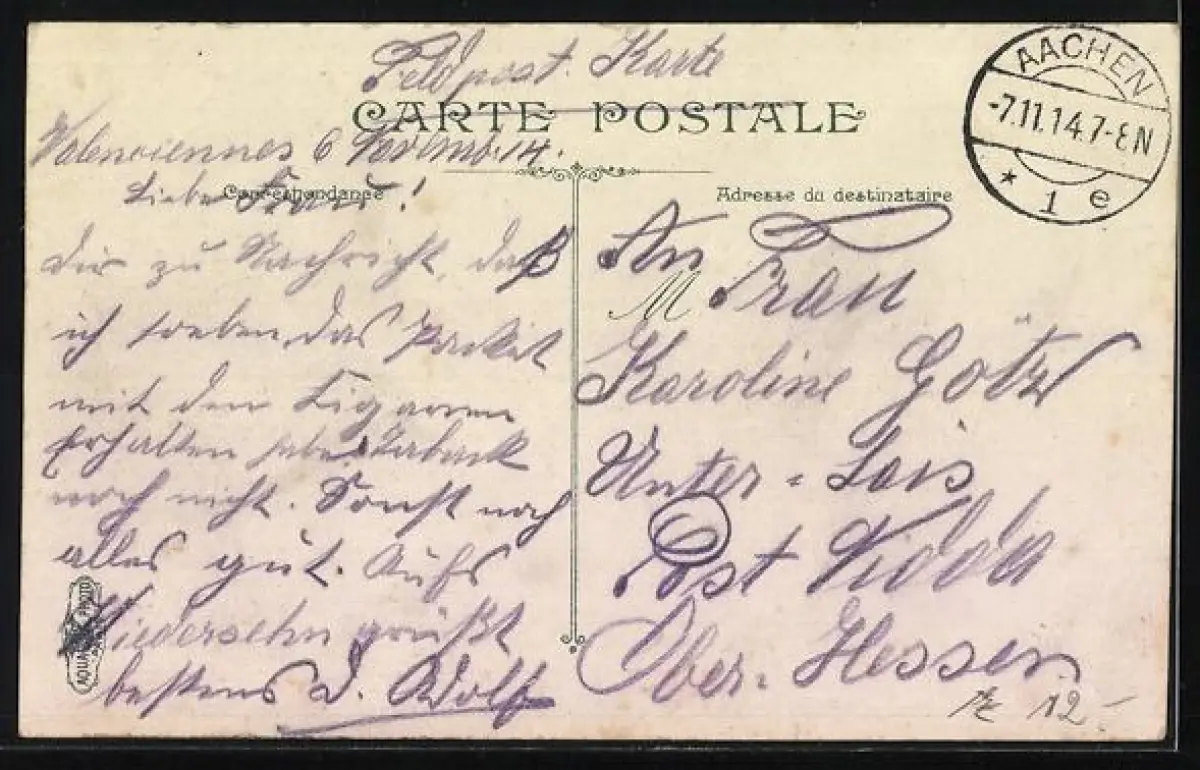 Feldpost. Karte
CARTE POSTALE
AACHEN
-7.11.14.7-8N
* 1 e
Valenciennes 6 Novemb. 14.
Correspondance
Liebe Frau!
Dir zu Nachricht, daß
ich soeben das Packet
mit den Zigarren
Erhalten habe. Taback
noch nicht. Sonst noch
alles gut. Aufs
Wiedersehn grüßt
bestens D. Adolf
AQUA PHOTO
Adresse du destinataire
An
M Frau
Karoline Götz
Unter-Lais
Post Nidda
Ober-Hessen
12-